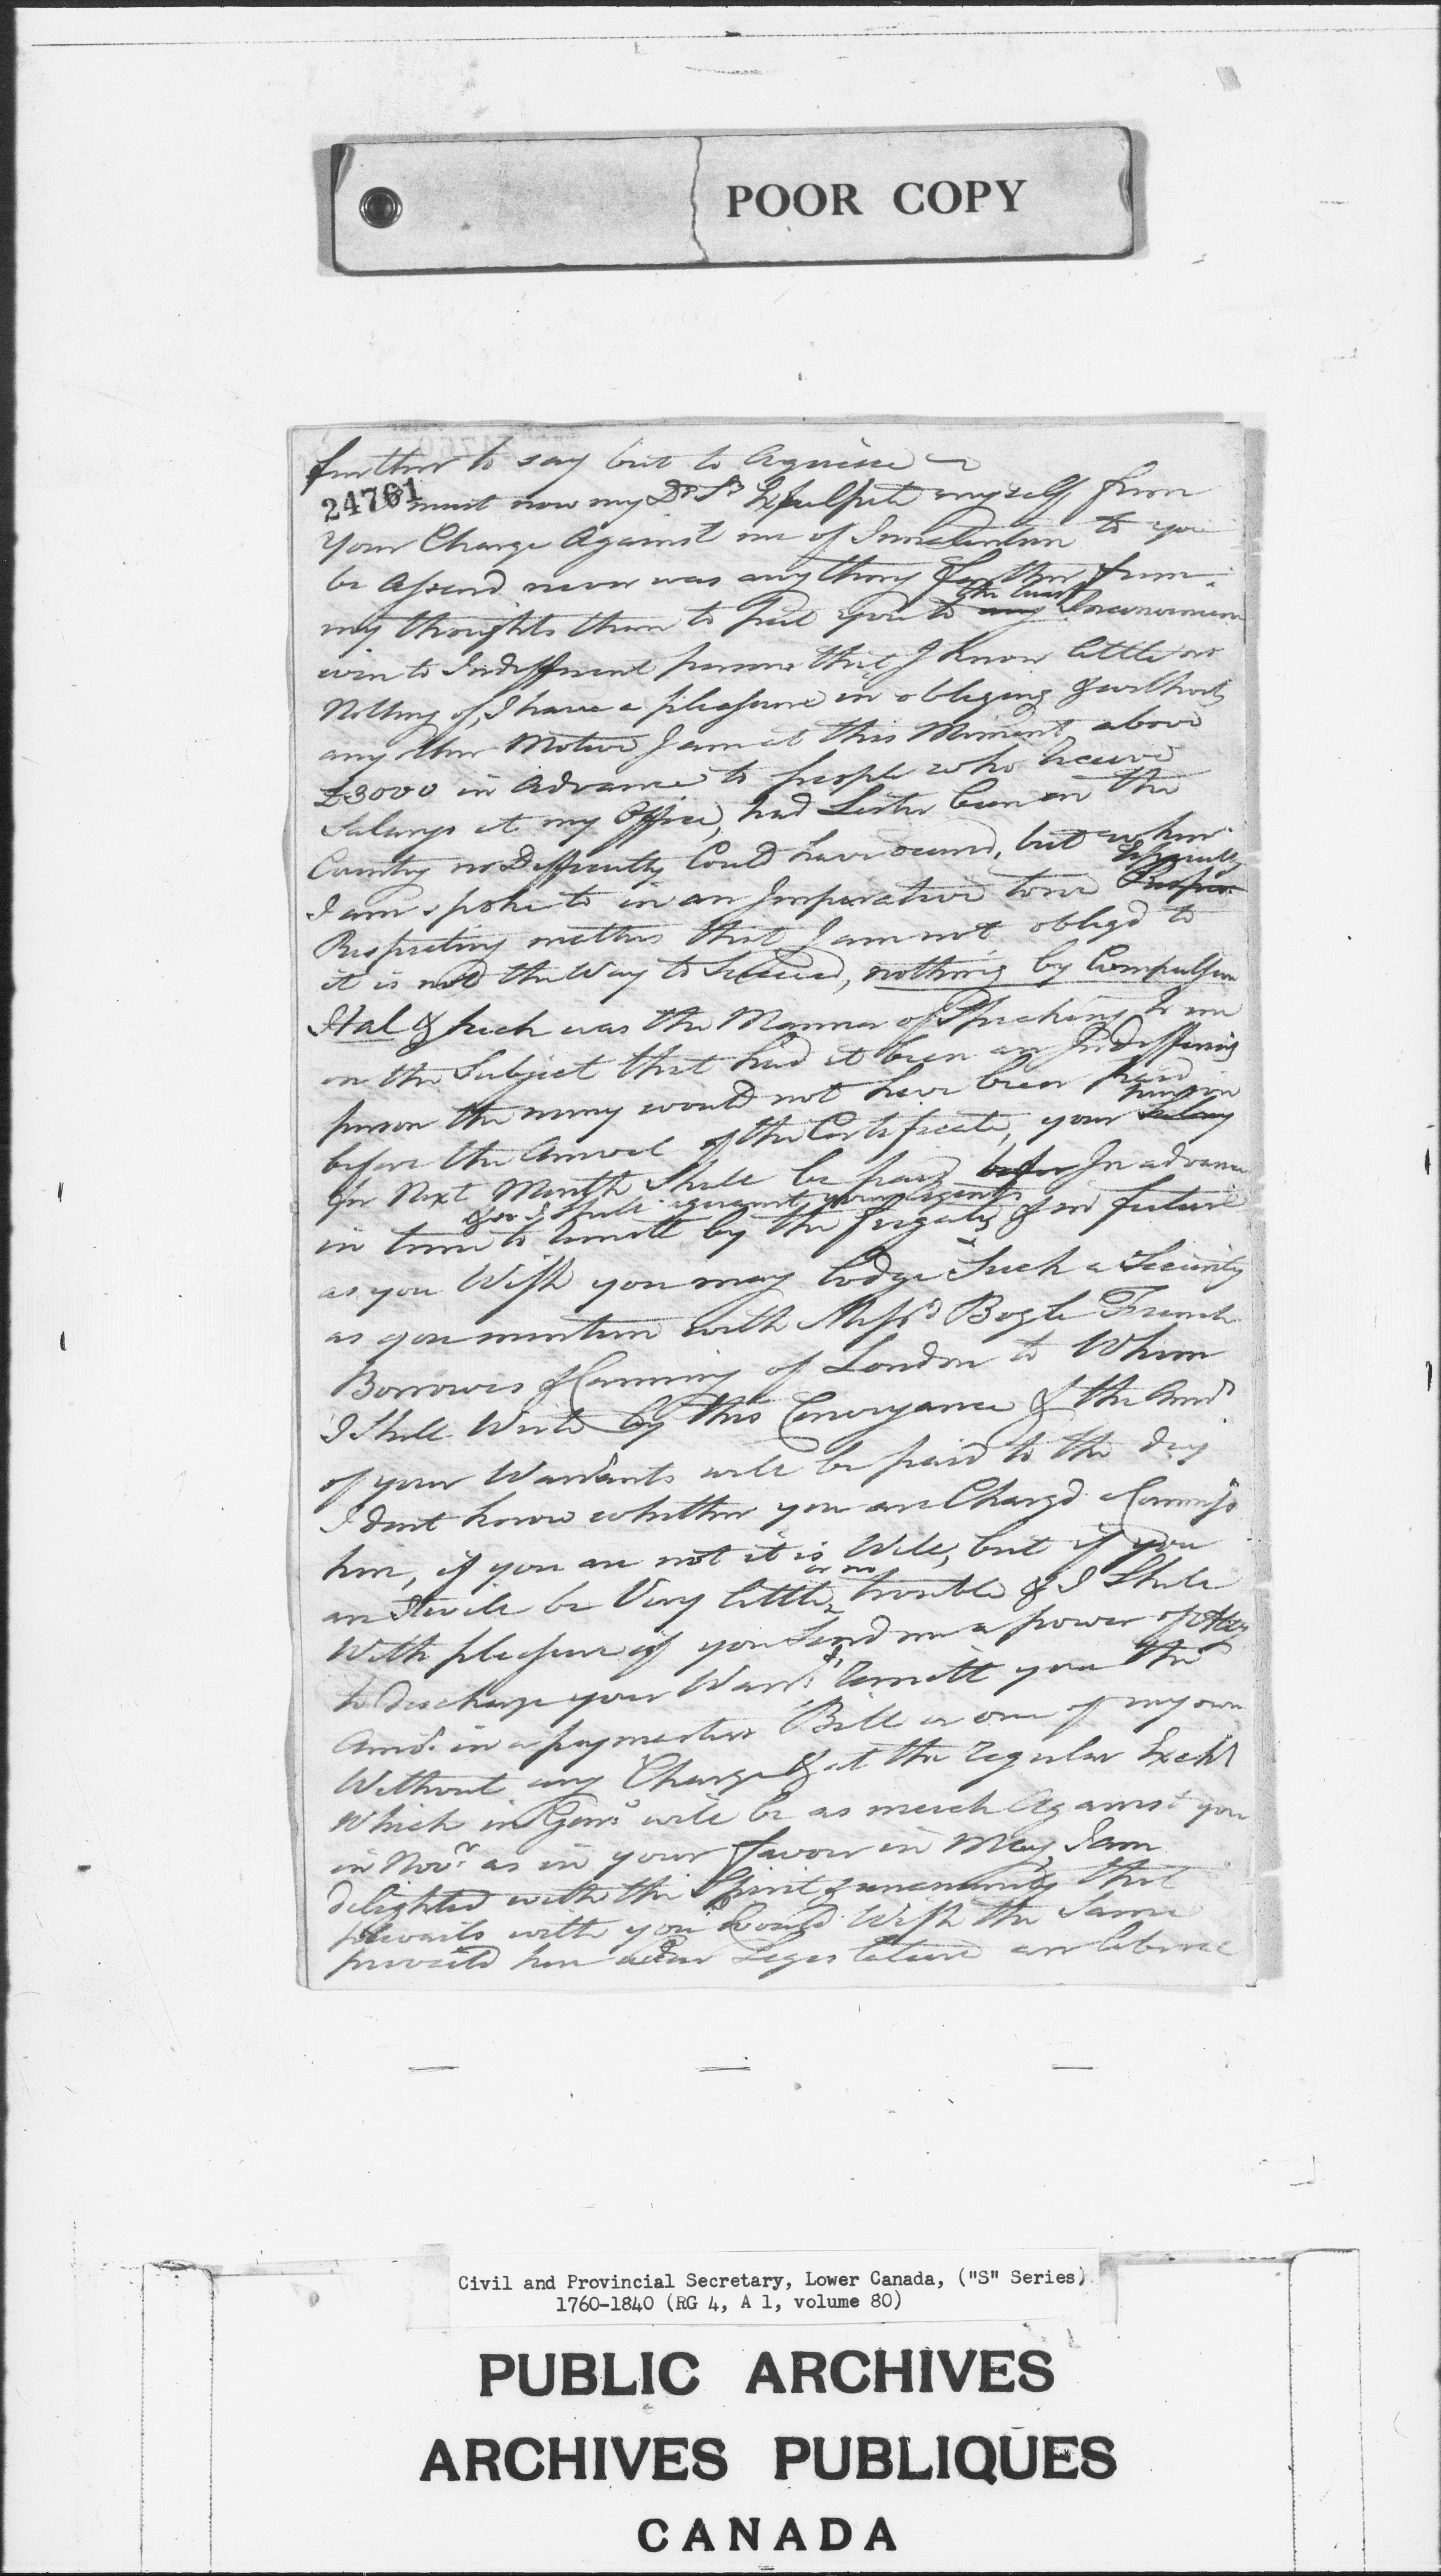 POOR COPY
further to say but to Aquiesce
24761
must now my Dr Sr Exculpate myself from
Your Charge Against me of Inattention to you
be Assured never was any thing farther from
the least
my thoughts than to put you to any Inconvenience
even to Indifferent persons that I know little or
Nothing of, I have a pleasure in obliging & without
any other Motive I am at this Moment above
£3000 in advance to people who Receive
Salarys at my Office, had Lester been in the
Country no Difficulty Could have occured, but when
Especially
I am spoke to in an Imperative tone
Respecting matters that I am not obligd to
it is not the Way to Succeed, nothing by Compulsion
Hal & such was the Manner of Speaking to me
on the Subject that had it been an Indifferent
person the money would not have been paid
pension
before the Arrival of the Certificate, your Salary
for Next Month shall be paid before In advance
& so I shall acquaint your agents
in time to remitt by the frigate, & in future
as you Wish you may lodge Such a Security
as you mention with Messrs Bogle French
Borrowes & Canning of London to Whom
I Shall Write by this Conveyance & the Amt
of your Warrants will be paid to the day
I dont know whether you are Chargd Commissn
here, if you are not it is Well, but if you
or no
are it will be Very little trouble & I Shall
With pleasure if you Send me a power of Atty
to discharge your Warrts remitt you the
Amt. in a paymasters Bill or one of my own
Without any Charge & at the regular Exche
Which in Genl will be as much Against you
in Novr as in your favour in May, I am
delighted with the Spirit & unanimity that
prevails with you would Wish the Same
prevaild here our Legislature are liberal
Civil and Provincial Secretary, Lower Canada, ("S" Series)
1760-1840 (RG 4, A 1, volume 80)
PUBLIC ARCHIVES
ARCHIVES PUBLIQUES
CANADA